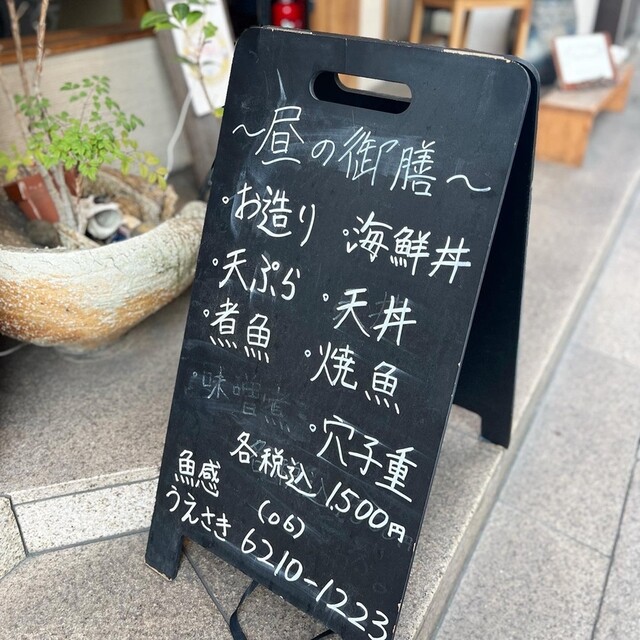 ～昼の御膳～
・お造り
・天ぷら
・煮魚
・味噌煮
・海鮮丼
・天丼
・焼魚
・穴子重
各税込1,500円
魚感
うえさき
(06)
6210-1223